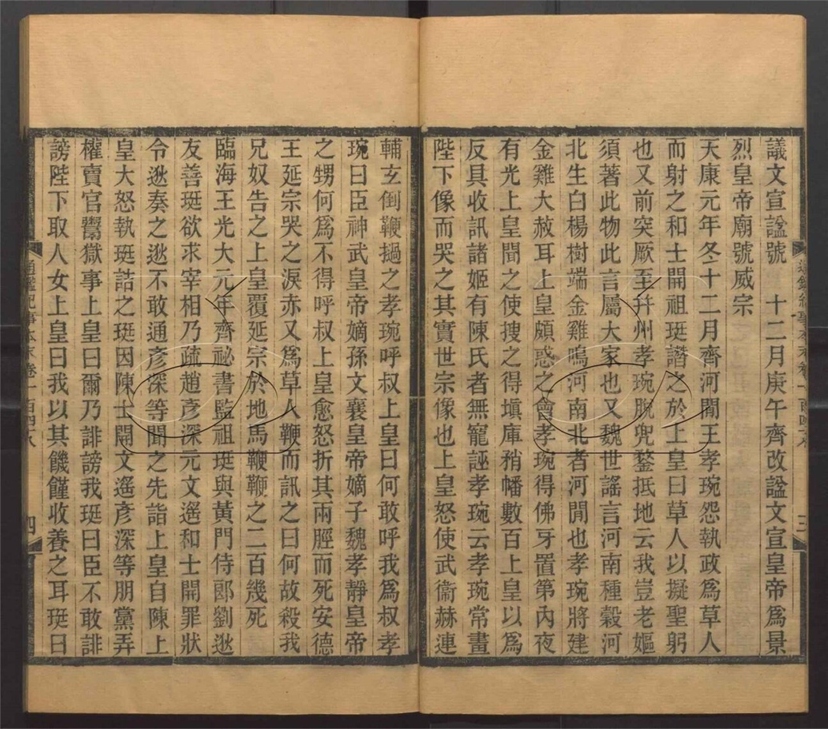 議文宣諡號　十二月庚午齊改諡文宣皇帝爲景
烈皇帝廟號威宗
天康元年冬十二月齊河閒王孝琬怨執政爲草人
而射之和士開祖珽譖之於上皇曰草人以擬聖躬
也又前突厥至幷州孝琬脫兜鍪抵地云我豈老嫗
須著此物此言屬大家也又魏世謠言河南種穀河
北生白楊樹端金雞鳴河南北者河閒也孝琬將建
金雞大赦耳上皇頗惑之會孝琬得佛牙置第內夜
有光上皇聞之使搜之得塡庫矟幡數百上皇以爲
反具收訊諸姬有陳氏者無寵誣孝琬云孝琬常畫
陛下像而哭之其實世宗像也上皇怒使武衞赫連
通鑑紀事本末卷一百四十八
三
輔玄倒鞭撾之孝琬呼叔上皇曰何敢呼我爲叔孝
琬曰臣神武皇帝嫡孫文襄皇帝嫡子魏孝靜皇帝
之甥何爲不得呼叔上皇愈怒折其兩脛而死安德
王延宗哭之淚赤又爲草人鞭而訊之曰何故殺我
兄奴告之上皇覆延宗於地馬鞭鞭之二百幾死
臨海王光大元年齊祕書監祖珽與黃門侍郎劉逖
友善珽欲求宰相乃疏趙彥深元文遙和士開罪狀
令逖奏之逖不敢通彥深等聞之先詣上皇自陳上
皇大怒執珽詰之珽因陳士開文遙彥深等朋黨弄
權賣官鬻獄事上皇曰爾乃誹謗我珽曰臣不敢誹
謗陛下取人女上皇曰我以其饑僅收養之耳珽曰
通鑑紀事本末卷一百四十八
四